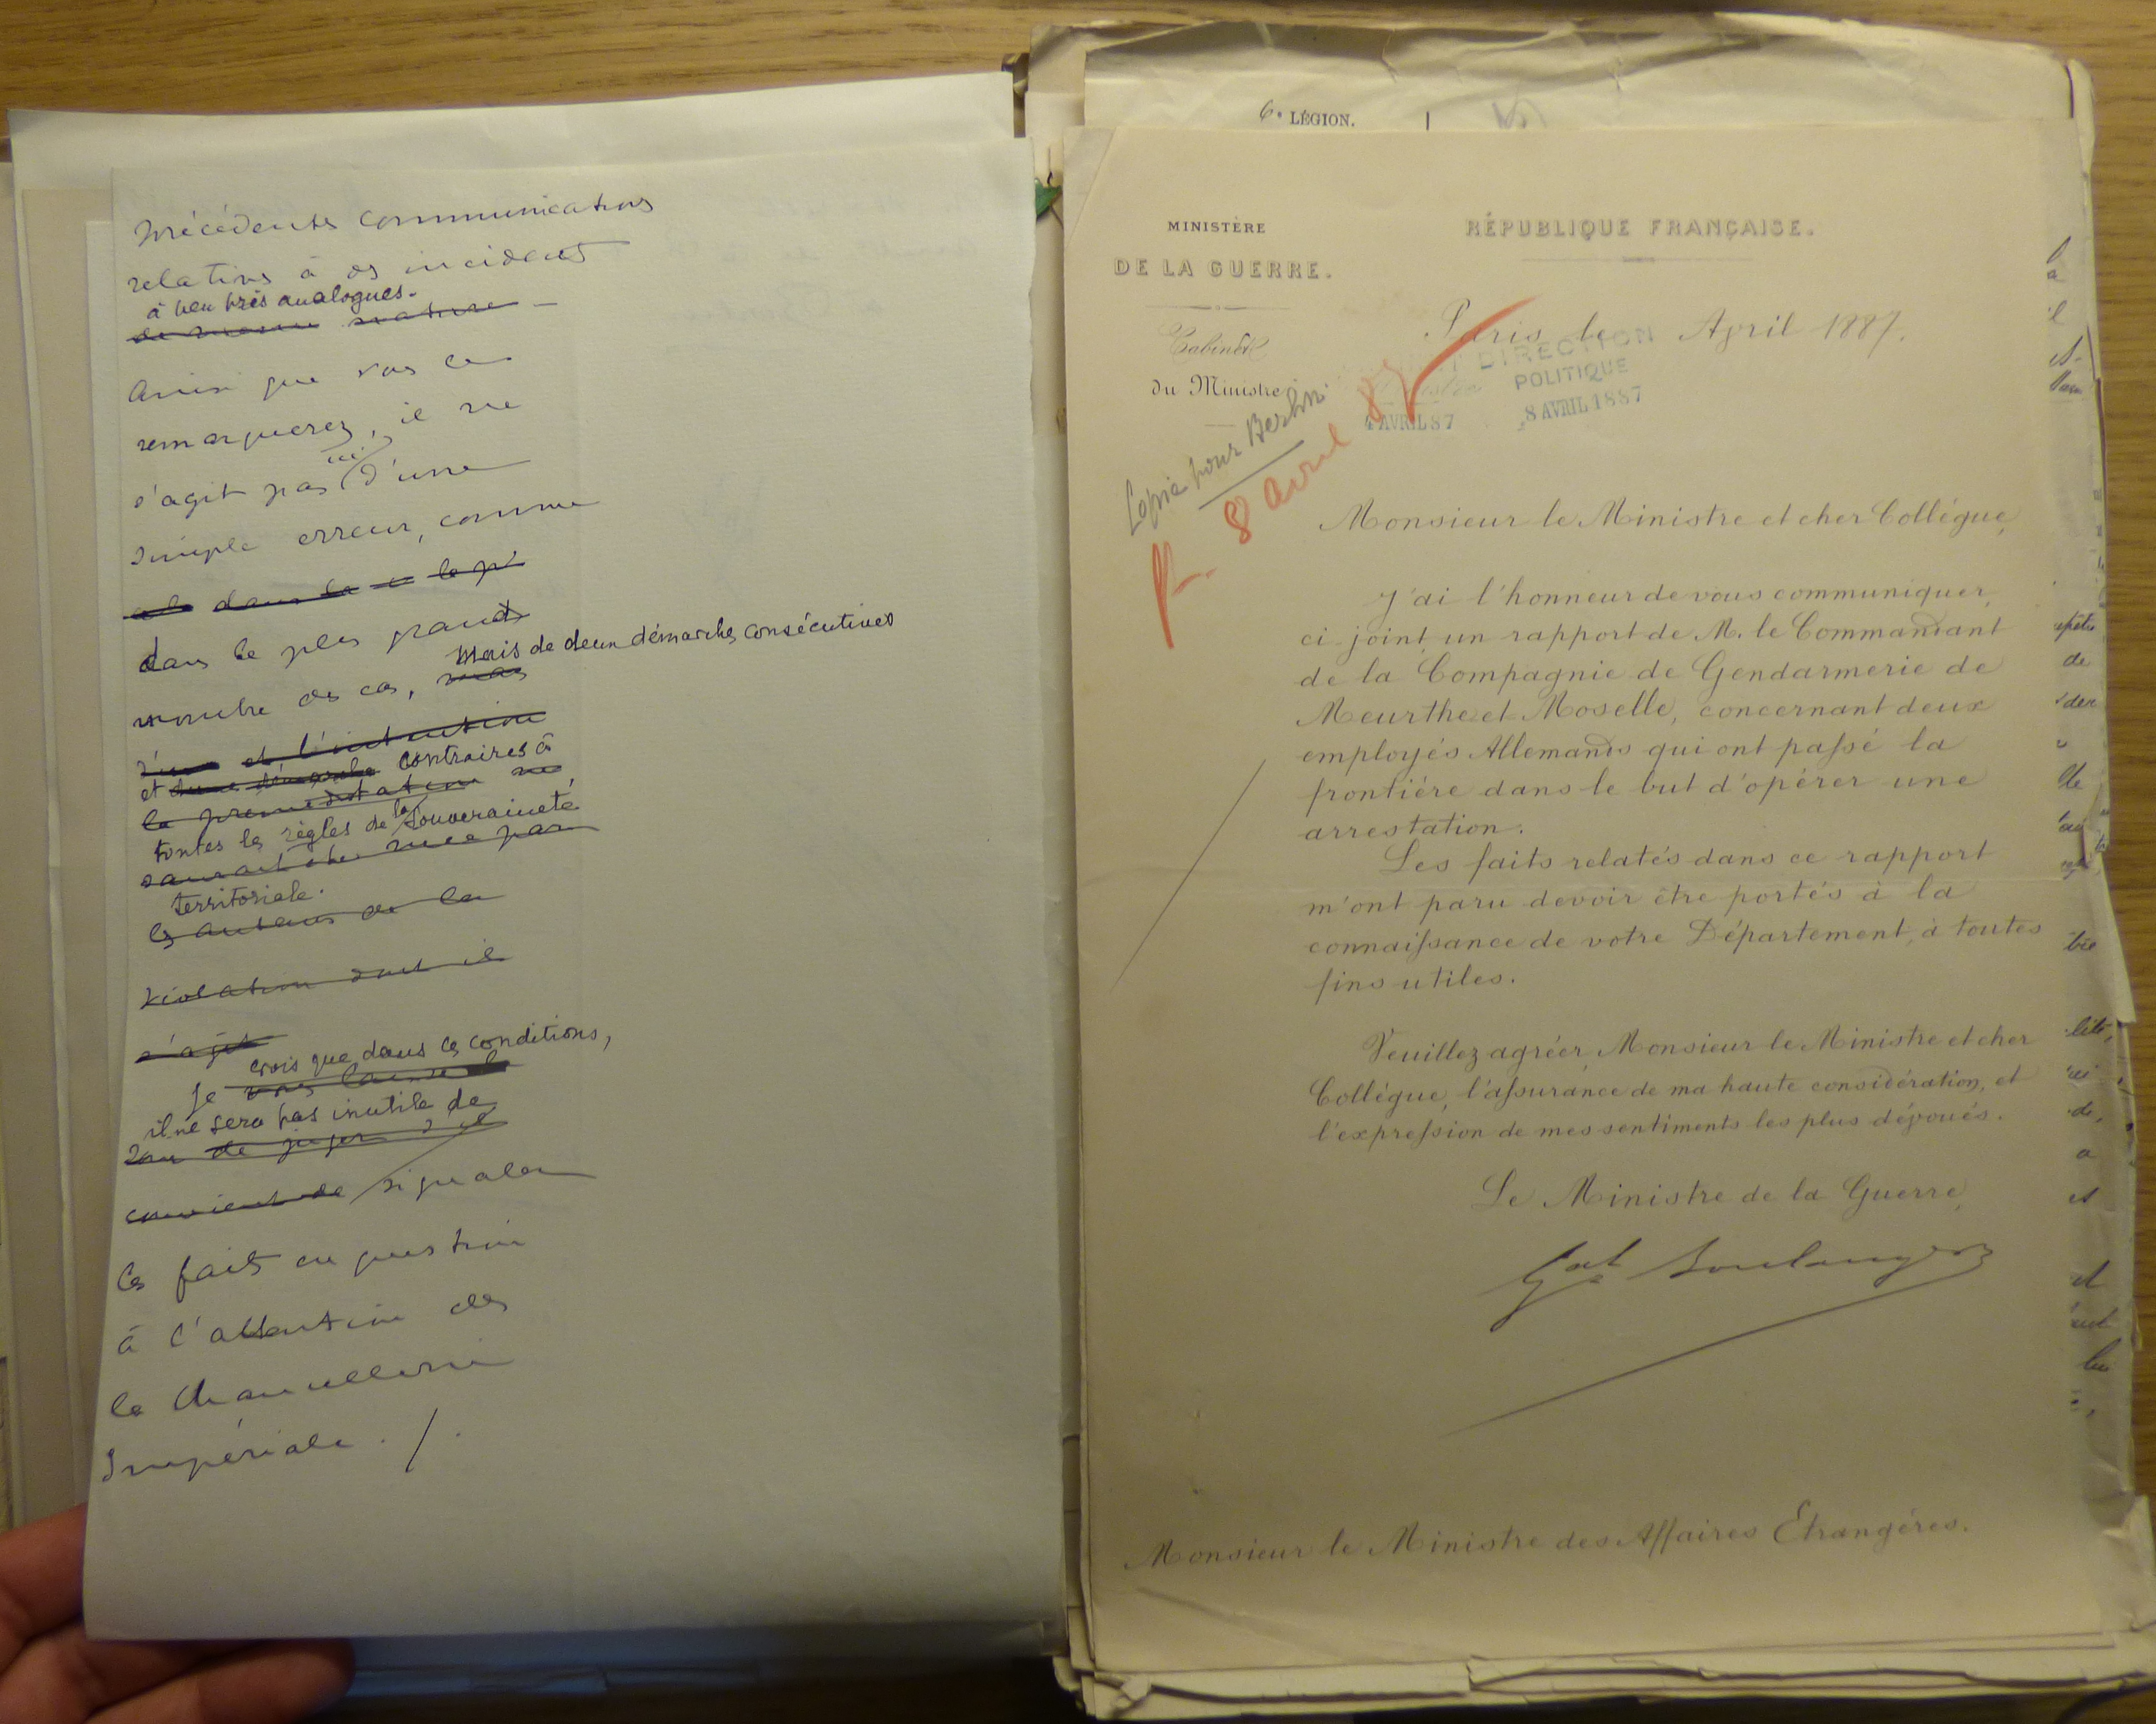 précédentes communications
relatives à des incidents
à peu près analogues.
de même nature
Ainsi que vous le
remarquerez, il ne
s'agit pas ici d'une
simple erreur, comme
dans la
dans le plus grand
nombre des cas, mais de deux démarches consécutives
et l'intention
et d'une démarche contraires à
la préméditation ne
toutes les règles de la souveraineté
saurait être niée par
territoriale.
les auteurs de la
violation dont il
s'agit
crois que dans ces conditions,
Je vous laisse le
il ne sera pas inutile de
soin de juger s'il
convient de signaler
les faits en question
à l'attention de
la Chancellerie
Impériale ./.
6e LÉGION.
MINISTÈRE
DE LA GUERRE.
Cabinet
du Ministre
RÉPUBLIQUE FRANÇAISE.
Paris, le April 1887.
DIRECTION
POLITIQUE
8 AVRIL 1887
4 AVRIL 87
Copie pour Berlin
R. 8 avril 87
Monsieur le Ministre et cher Collégue,
J'ai l'honneur de vous communiquer,
ci joint, un rapport de M. le Commandant
de la Compagnie de Gendarmerie de
Meurthe et Moselle, concernant deux
employés Allemands qui ont passé la
frontière dans le but d'opérer une
arrestation.
Les faits relatés dans ce rapport
m'ont paru devoir être portés à la
connaissance de votre Département, à toutes
fins utiles.
Veuillez agréer, Monsieur le Ministre et cher
Collégue, l'assurance de ma haute considération, et
l'expression de mes sentiments les plus dévoués.
Le Ministre de la Guerre,
Gal Boulanger
Monsieur le Ministre des Affaires Etrangères.